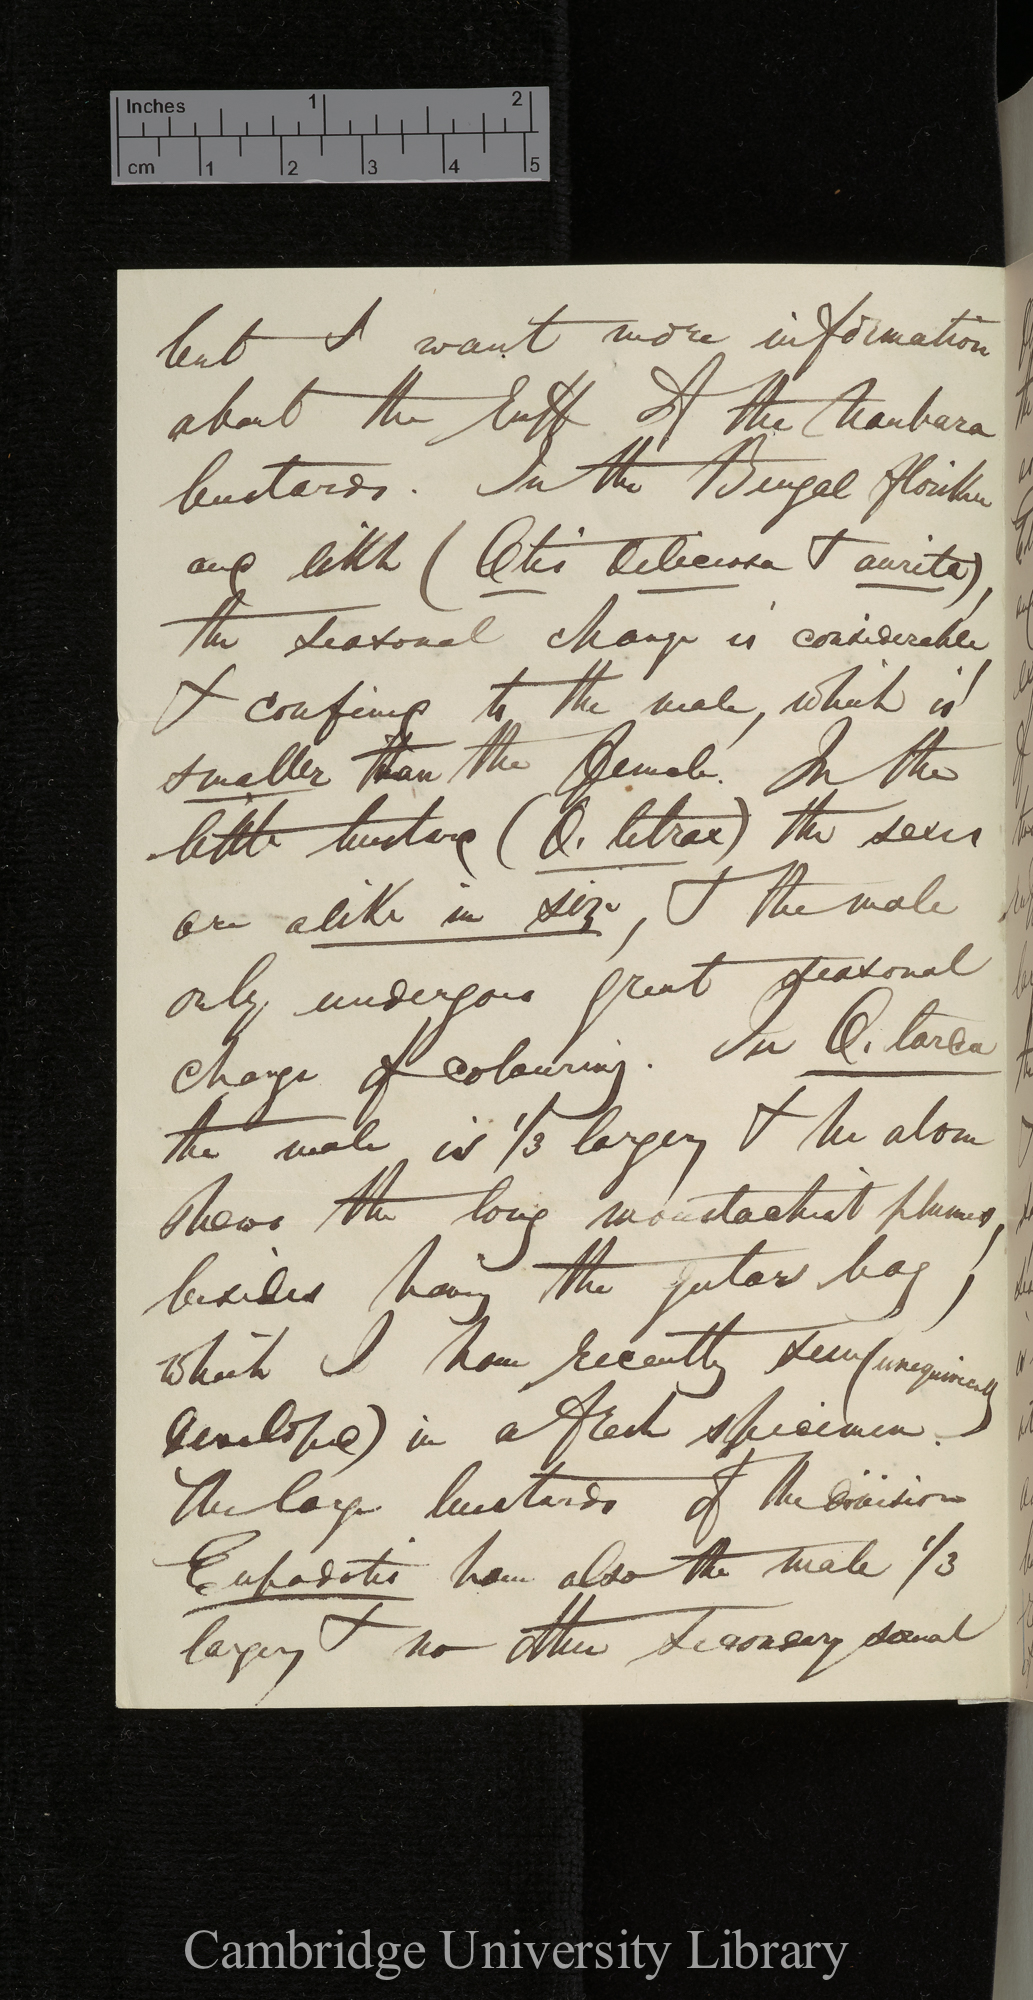 Inches 1 2
cm 1 2 3 4 5
but I want more information
about the ruff of the houbara
bustards. In the Bengal floriken
and likh (Otis deliciosa & aurita),
the seasonal change is considerable
& confined to the male, which is
smaller than the female. In the
little bustard (O. tetrax) the sexes
are alike in size, & the male
only undergoes great seasonal
change of colouring. In O. tarda
the male is 1/3 larger, & he alone
shews the long moustachial plumes,
besides having the gular bag,
which I have recently seen (unequivocally
developed) in a fresh specimen.
The large bustards of the division
Eupodotis have also the male 1/3
larger, & no other secondary sexual
Cambridge University Library